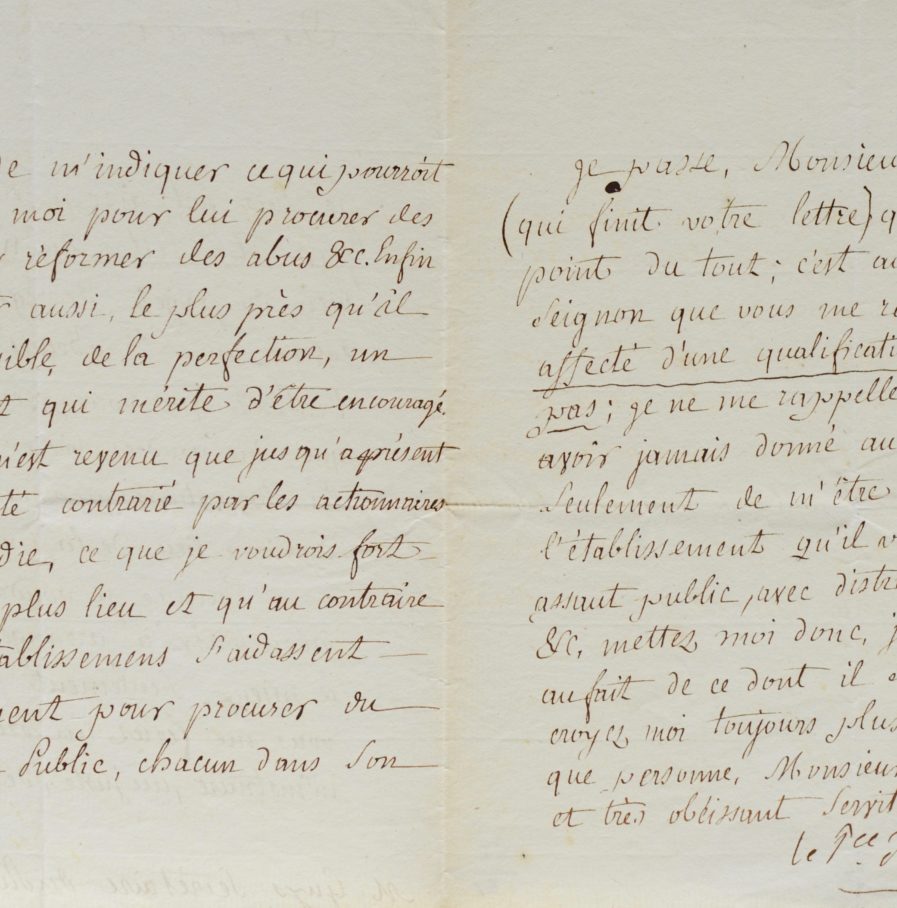 de m'indiquer ce qui pourroit
moi pour lui procurer des
réformer des abus &c. Enfin
aussi, le plus près qu'il
sible, de la perfection, un
t qui mérite d'être encouragé.
n'est revenu que jusqu'aprésent
té contrarié par les actionnaires
die, ce que je voudrois fort
plus lieu et qu'au contraire
tablissemens s'aidassent
ment pour procurer du
Public, chacun dans son
je passe, Monsieu
(qui finit votre lettre) q
point du tout; c'est au
Seignon que vous me r
affecté d'une qualificati
pas; je ne me rappelle
avoir jamais donné au
seulement de m'être
l'établissement qu'il v
assaut public, avec distri
&c, mettez moi donc, j
au fait de ce dont il
croyez moi toujours plus
que personne, Monsieur
et très obéissant Servit
le Pce